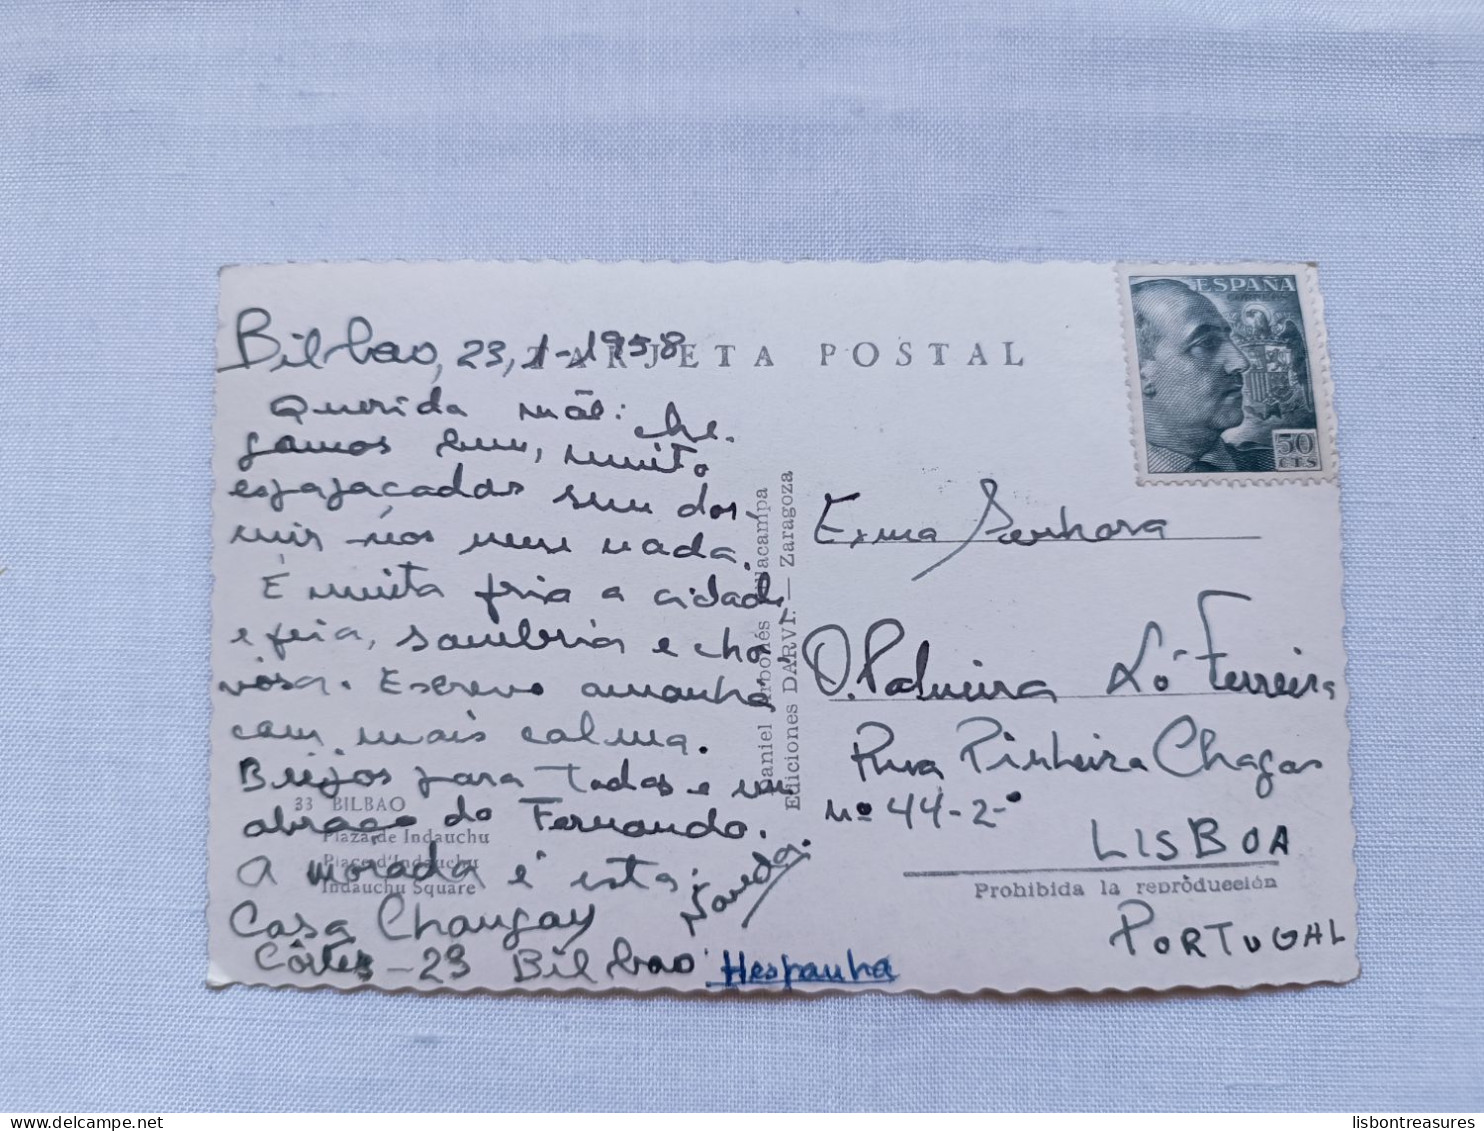 TARJETA POSTAL
ESPAÑA
50
CTS
Bilbao, 23,1-1958
Querida mãe: che-
gamos bem, muito
esfafacados sem dor-
mir nós nem nada.
É muito fria a cidade
e feia, sombria e chu
viosa. Escrevo amanhã
com mais calma.
Beijos para todas e um
abraço do Fernando.
A morada é esta:
Casa
Côrtes - 23 Bilbao Hespanha
33 BILBAO
Plaza de Indauchu
Place d'Indauchu
Indauchu Square
Daniel Arbonés Villacampa
Ediciones DARVI. — Zaragoza
Exma Senhora
D. Palmira Ló Ferreira
Rua Pinheiro Chagas
nº 44-2-º
LISBOA
Prohibida la reproducción
PORTUGAL
lisbontreasures
delcampe.net